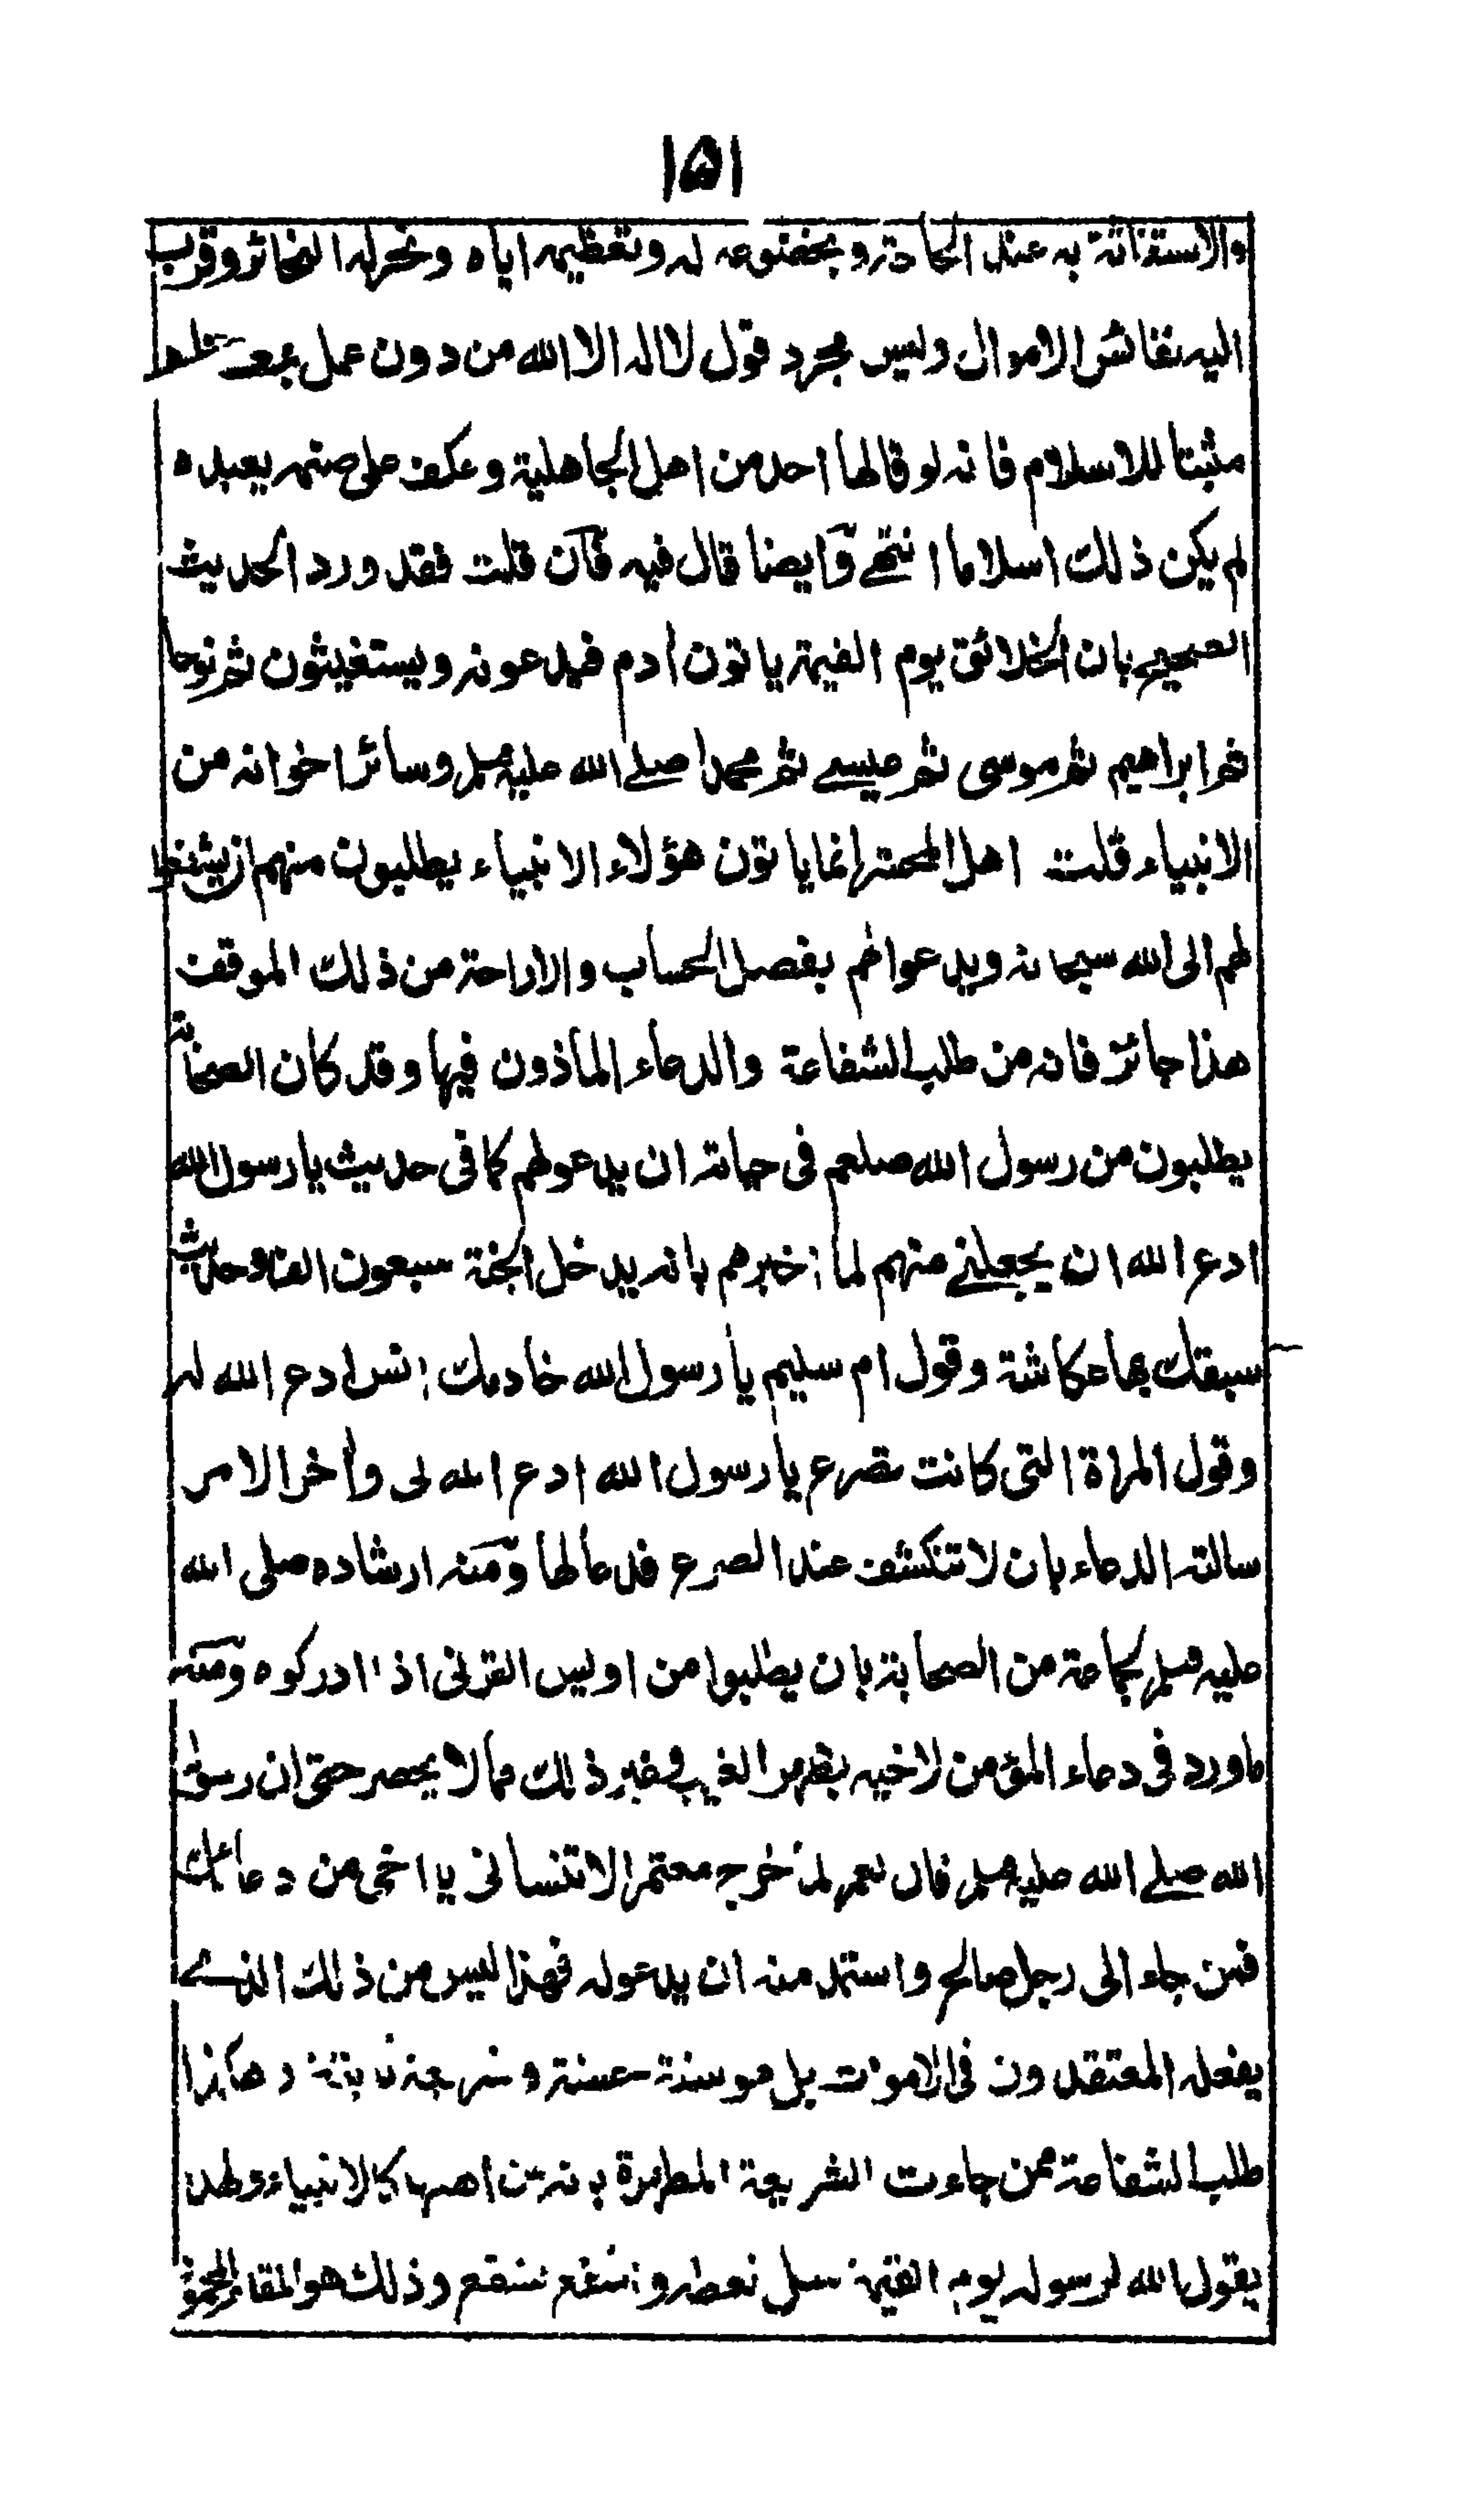 ١٥١
والاستغاثة به عند الحاجة وبخضوعه له وتعظيمه اياه ونحره له النحائر وقرب
اليه نفائس الاموال وليس مجرد قول لا اله الا الله من دون عمل بمعناها
مثبتا للاسلام فانه لو قالها احد من اهل الجاهلية وعكف على صنمه يعبده
لم يكن ذلك اسلاما انتهى وايضا قال فيه فان قلت فقد ورد الحديث
الصحيح بان الخلائق يوم القيمة ياتون ادم فيدعونه ويستغيثون ثم نوحا
ثم ابراهيم ثم موسى ثم عيسے ثم محمدا صلے الله عليه وسلم وسائر اخوانه من
الانبياء قلت اهل المحشر انما ياتون هؤلاء الانبياء يطلبون منهم ان يشفعوا
لهم الى الله سبحانه ويدعوا لهم بفصل الحساب والاراحة من ذلك الموقف
هذا جائز فانه من طلب الشفاعة والدعاء الماذون فيها وقد كان الصحابة
يطلبون من رسول الله صلعم فى حياته ان يدعو لهم كما فى حديث يا رسول الله
ادع الله ان يجعلنے منهم لما اخبرهم بانه يدخل الجنة سبعون الفا وحديث
سبقك بها عكاشة وقول ام سليم يا رسول الله خادمك انس ادع الله له
وقول المراة التى كانت تصرع يا رسول الله ادع الله لى واخر الامر
سالته الدعاء بان لا تنكشف عند الصرع فدعا لها ومنه ارشاده صلى الله
عليه وسلم لجماعة من الصحابة بان يطلبوا من اويس القرنى اذا ادركوه ومنه
ما ورد فى دعاء المؤمن لاخيه بظهر الغيب وغير ذلك مما لا يحصر حتى ان رسول
الله صلے الله عليه وسلم قال لعمر لما خرج معتمرا لا تنسانى يا اخى من دعائك
فمن جاء الى رجل صالح واستمد منه ان يدعو له فهذا ليس من ذلك الذے
يفعله المعتقدون فى الاموات بل هو سنة حسنة وشريعة ثابتة وهكذا
طلب الشفاعة ممن جاءت الشريعة المطهرة بانه من اهلها كالانبياء ولهذا
يقول الله لرسوله يوم القيمة سل تعطه واشفع تشفع وذلك هو المقام المحمود